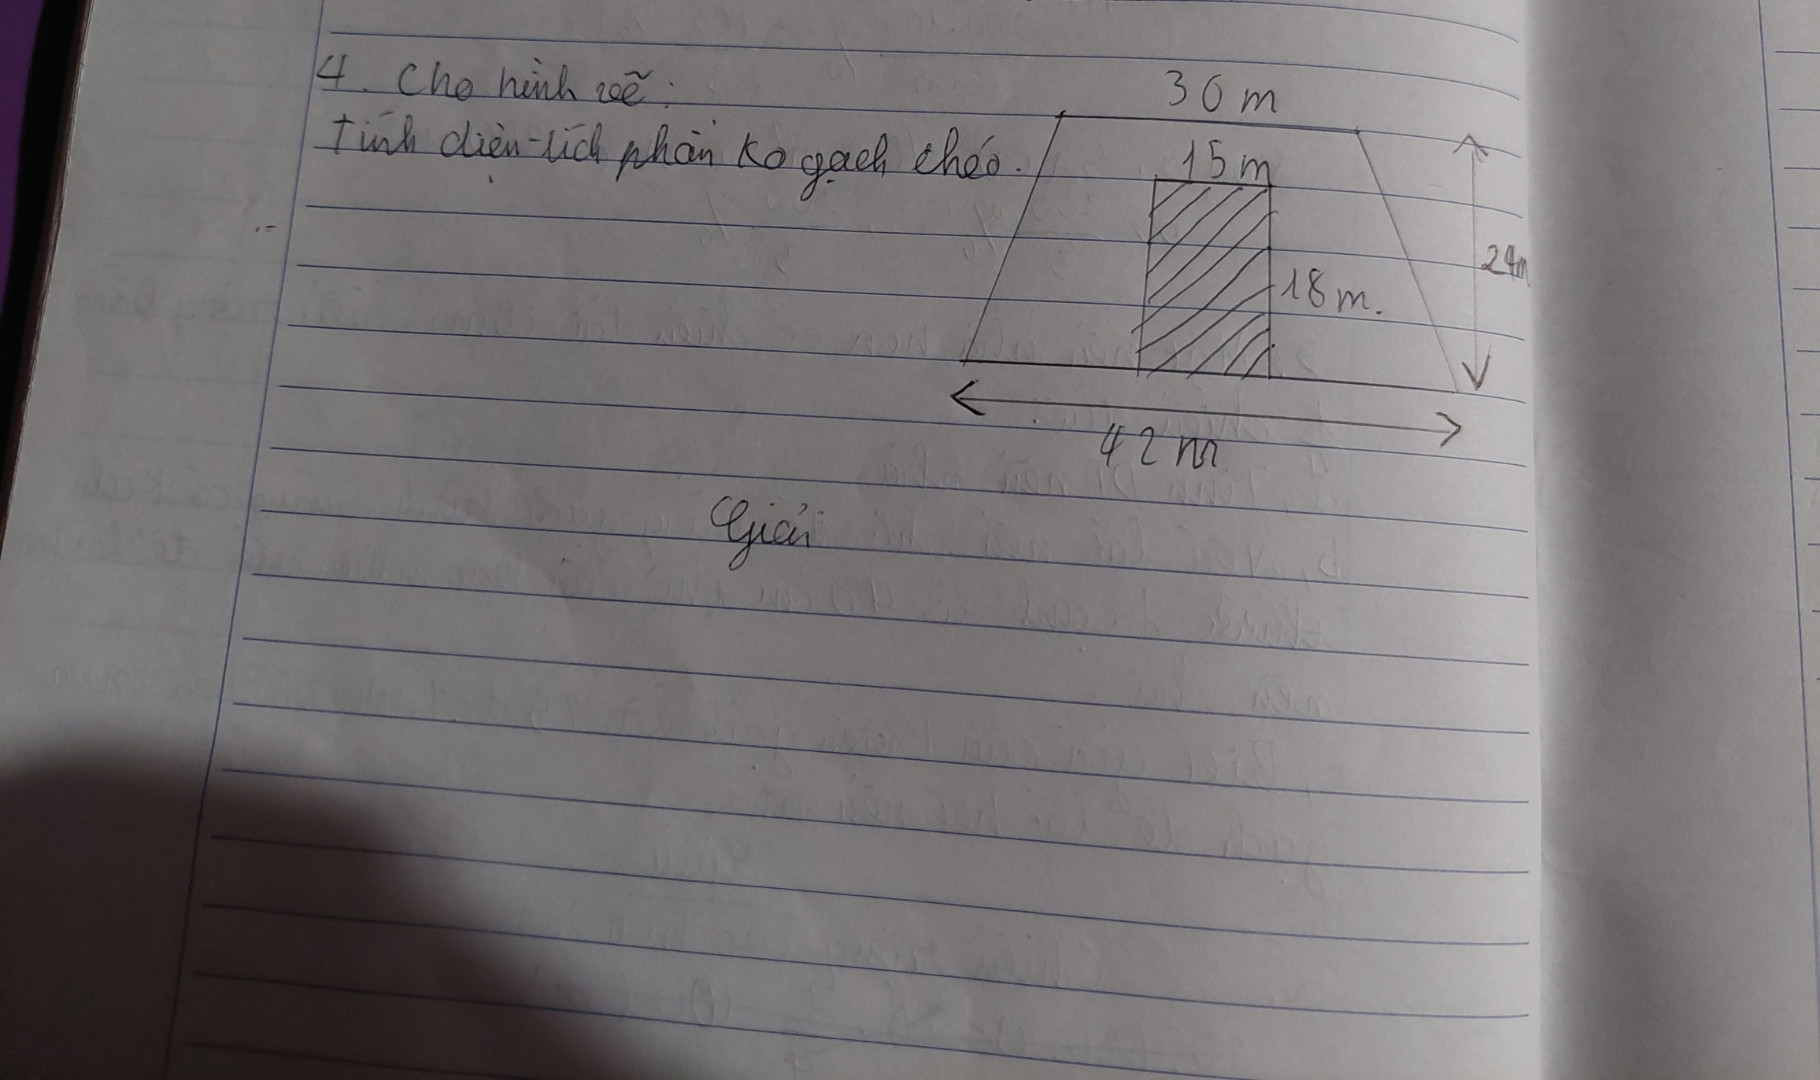 4. Cho hình vẽ:
30 m
Tính diện tích phần ko gạch chéo.
15 m
24m
18 m.
42 m
Giải